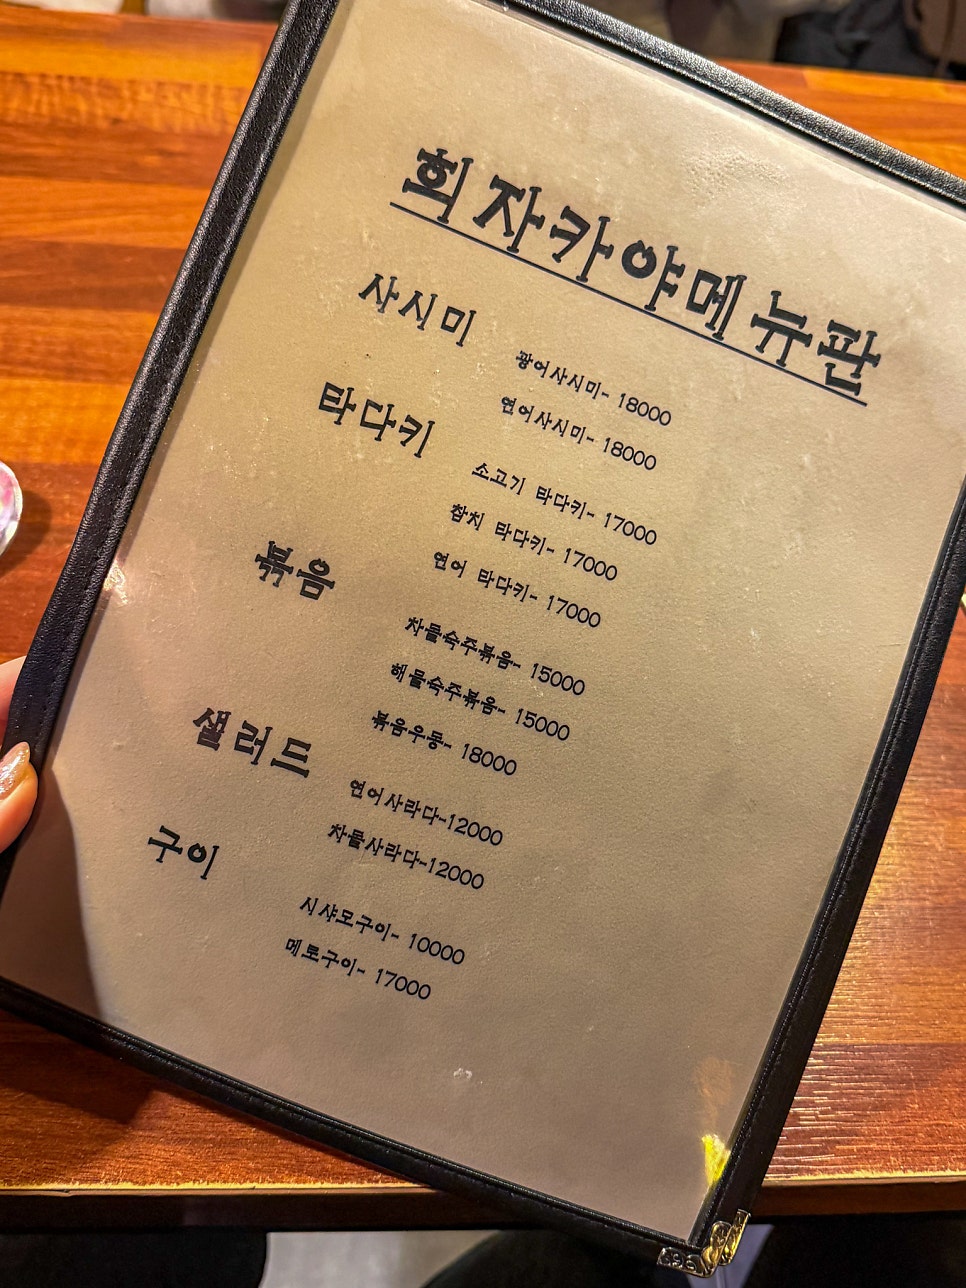 회자카야메뉴판
사시미
광어사시미- 18000
연어사시미- 18000
타다키
소고기 타다키- 17000
참치 타다키- 17000
연어 타다키- 17000
볶음
차돌숙주볶음- 15000
해물숙주볶음- 15000
볶음우동- 18000
샐러드
연어사라다-12000
차돌사라다-12000
구이
시샤모구이- 10000
메로구이- 17000